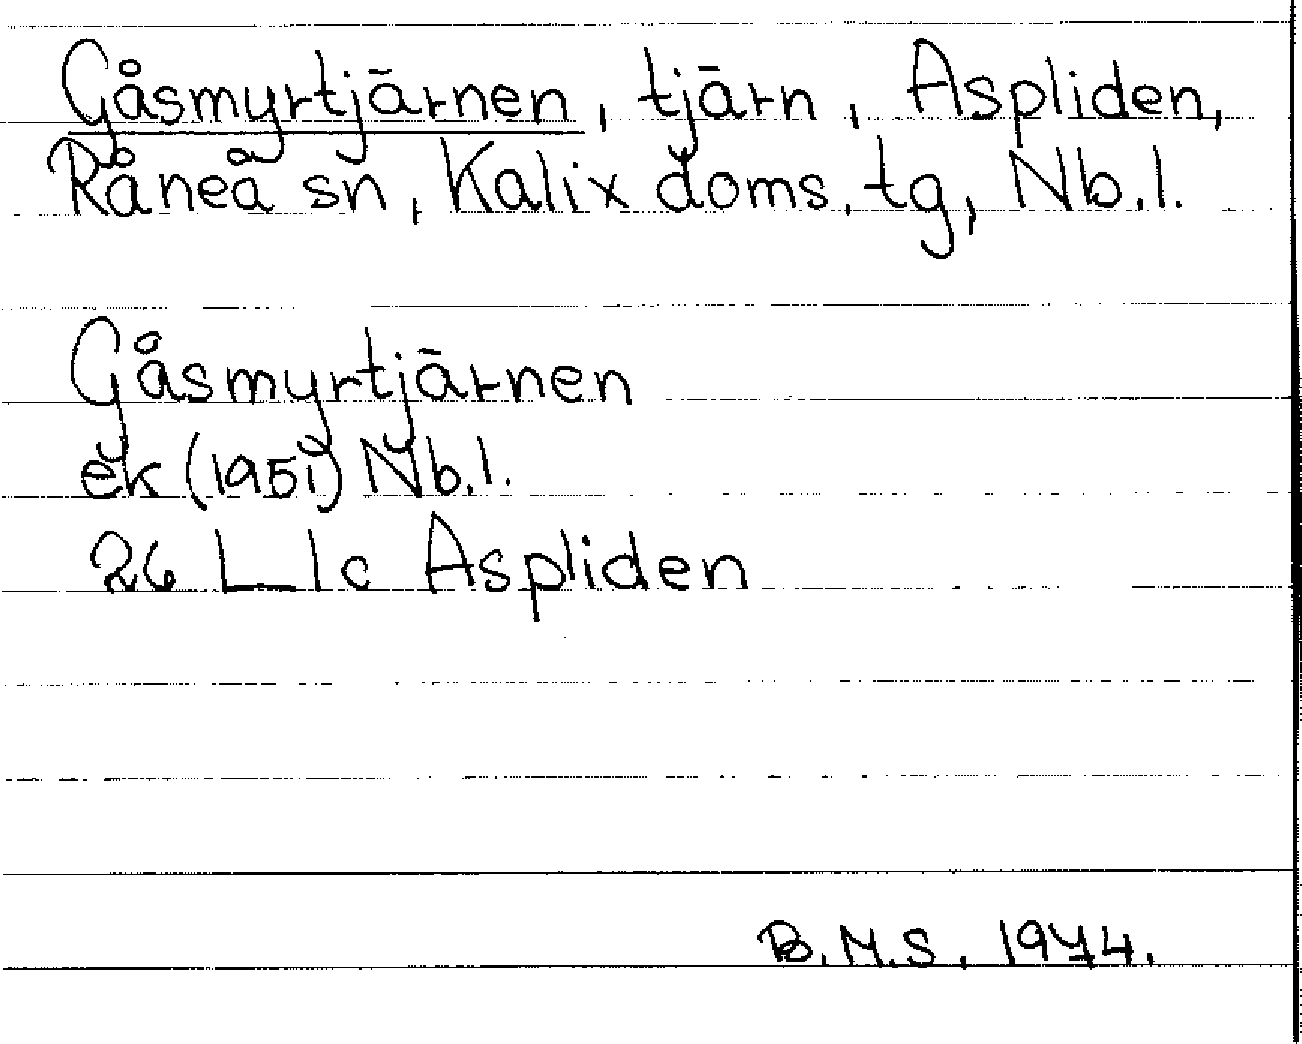 Gåsmyrtjärnen, tjärn, Aspliden,
Råneå sn, Kalix doms. tg, Nb.l.
Gåsmyrtjärnen
ek (1951) Nb.l.
26 L 1c Aspliden
B.M.S. 1974.